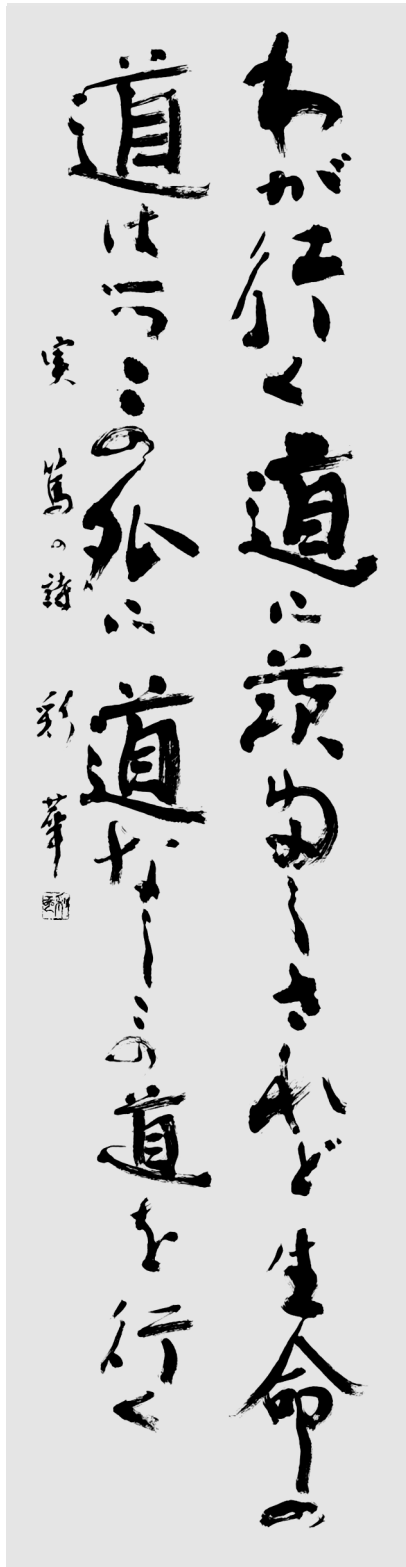 わが行く道に茨多しされど生命の
道は一つこの外に道なしこの道を行く
実篤の詩 彩華